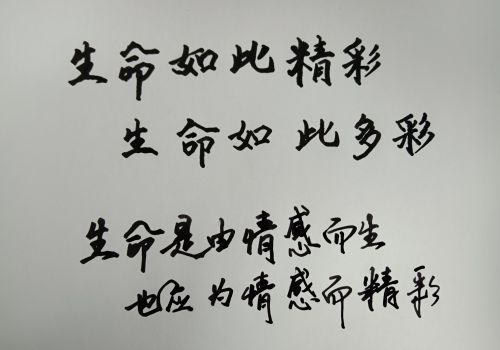 生命如此精彩
生命如此多彩
生命是由情感而生
也应为情感而精彩